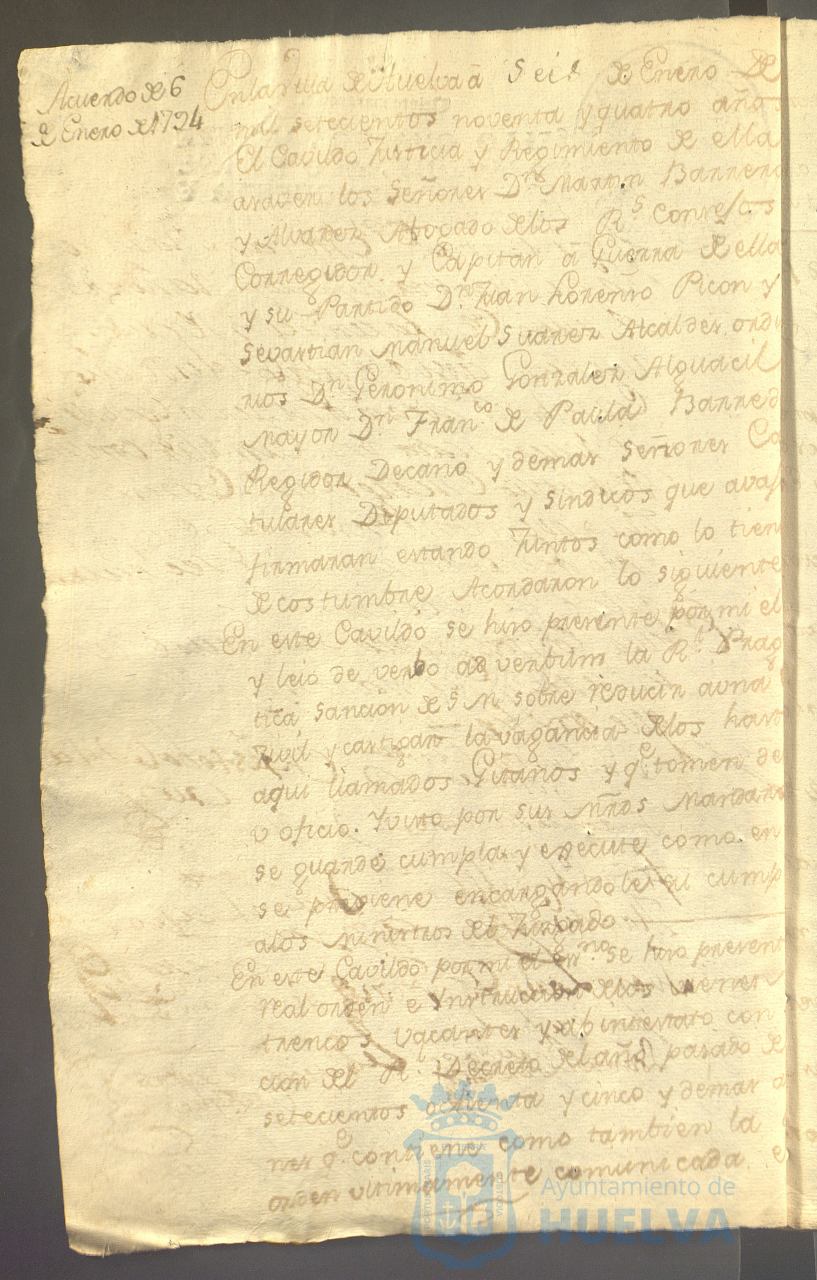 Acuerdo de 6
de Enero de 1794
En la Villa de Huelva à Seis de Enero de
mil setecientos noventa y quatro años
El Cavildo Justicia y Regimiento de ella
asaver los Señores Dn Martin Barrero
y Alvarez Abogado delos Rs Consejos
Corregidor y Capitan à Guerra de ella
y su Partido Dn Juan Lorenzo Picon y
Sevastian Manuel Suarez Alcaldes ordi
rios Dn Geronimo Gonzalez Alguacil
mayor Dn Franco de Paula Barreda
Regidor Decano y demas Señores Ca
tulares Diputados y Sindicos que avajo
firmaran estando Juntos como lo tien
de costumbre Acordaron lo siguiente
En este Cavildo se hizo presente por mi el
y leio de verbo ad verbum la Rl Prag
tica Sancion de S M sobre reducir a vida
Zivil y castigar la vagancia delos hasta
aqui llamados Gitanos y qe tomen de
u oficio. Y visto por sus mrds Mandaron
se guarde cumpla y execute como en
se previene encargandole al cump
alos Ministros del Juzgado
En este Cavildo por mi el Esno se hizo present
real orden è Ynstruccion delos vienes
trencos vacantes y abintestato con
cion del Rl Decreto del año pasado de
setecientos ochenta y cinco y demas
nes qe contiene como tambien la
orden ultimamente comunicada
Ayuntamiento de
HUELVA